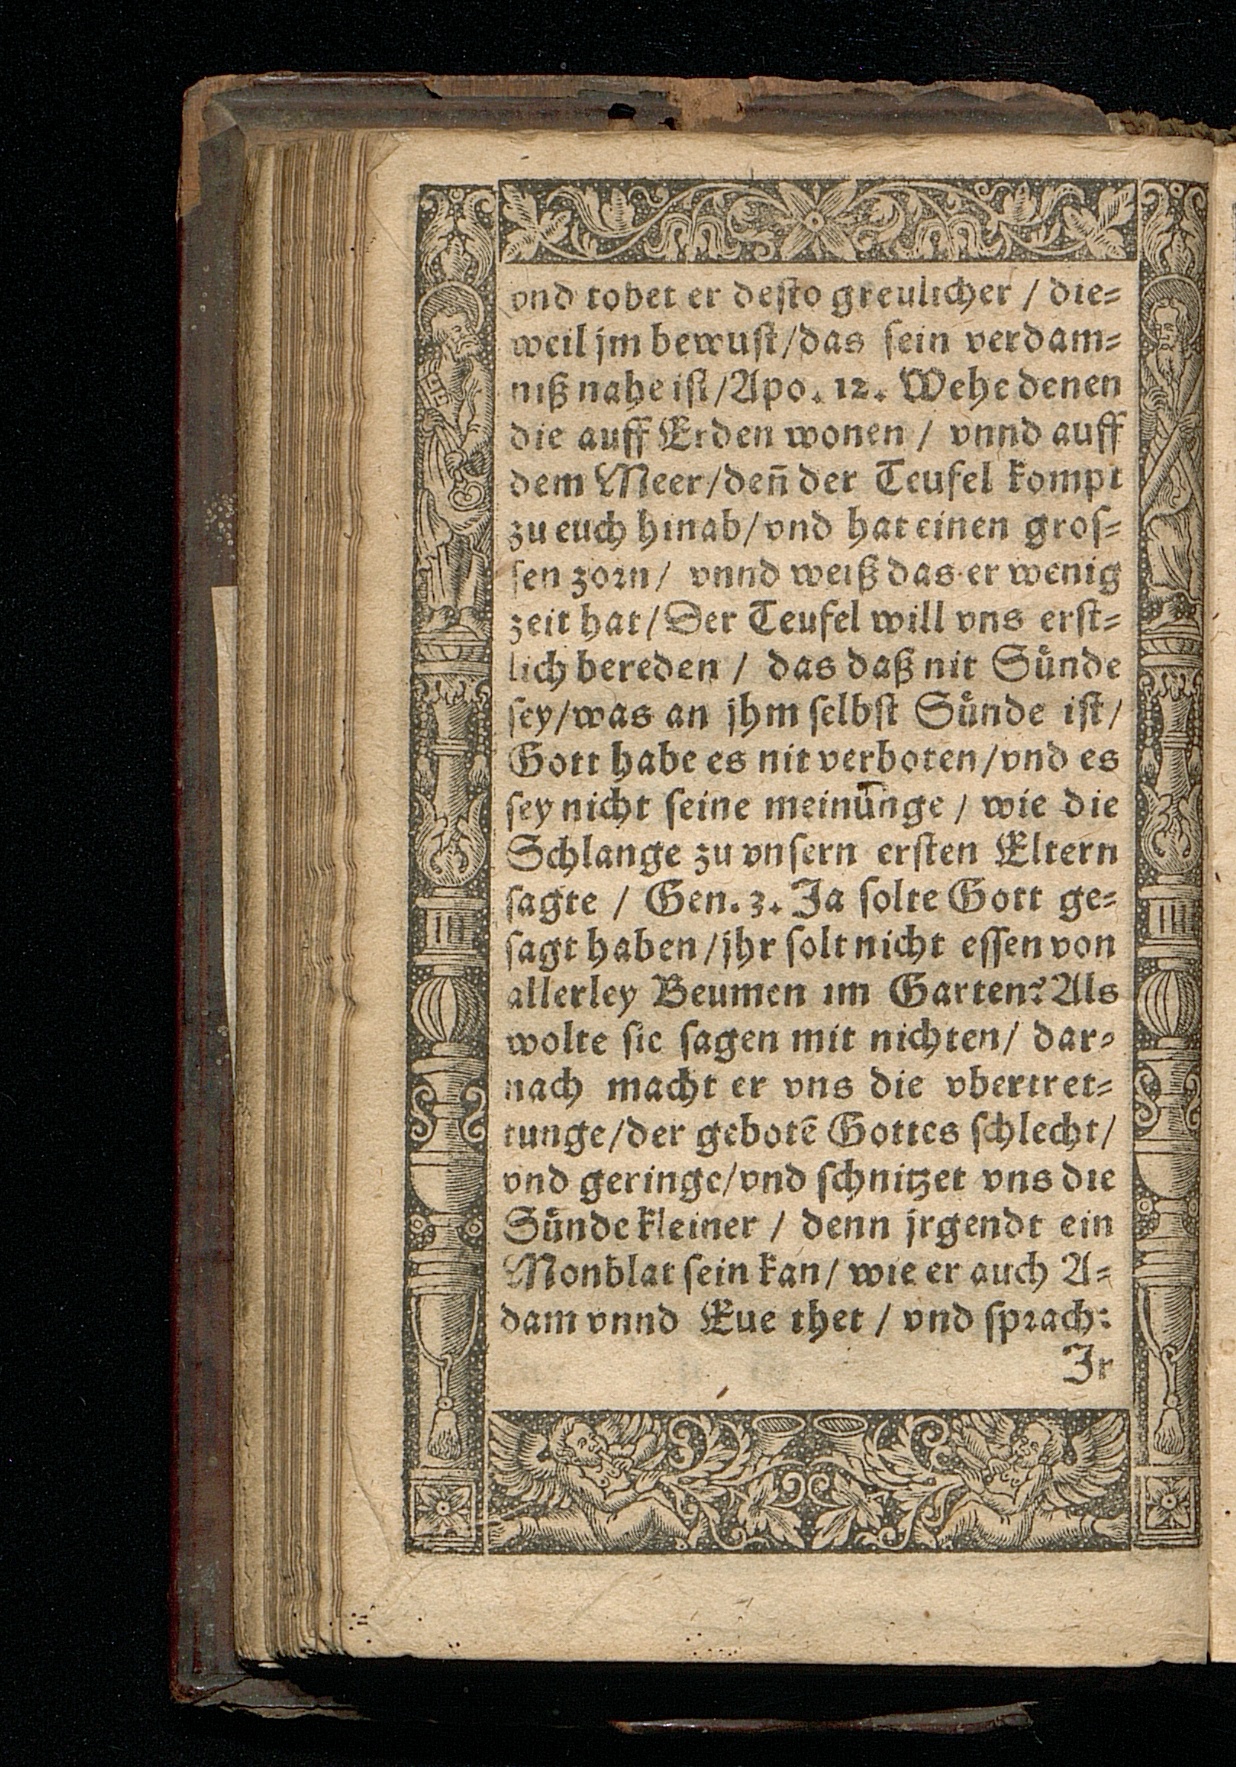 vnd tobet er desto greulicher / die⸗
weil jm bewust/das sein verdam⸗
niß nahe ist/Apo. 12. Wehe denen
die auff Erden wonen / vnnd auff
dem Meer/deñ der Teufel kompt
zu euch hinab/vnd hat einen gros⸗
sen zorn/ vnnd weiß das er wenig
zeit hat/Der Teufel will vns erst⸗
lich bereden / das daß nit Sünde
sey/was an jhm selbst Sünde ist/
Gott habe es nit verboten/vnd es
sey nicht seine meinūnge / wie die
Schlange zu vnsern ersten Eltern
sagte / Gen. 3. Ja solte Gott ge⸗
sagt haben/jhr solt nicht essen von
allerley Beumen im Garten? Als
wolte sie sagen mit nichten/ dar⸗
nach macht er vns die vbertret⸗
tunge/der gebotē Gottes schlecht/
vnd geringe/vnd schnitzet vns die
Sünde kleiner / denn jrgendt ein
Monblat sein kan/ wie er auch A⸗
dam vnnd Eue thet / vnd sprach:
Jr